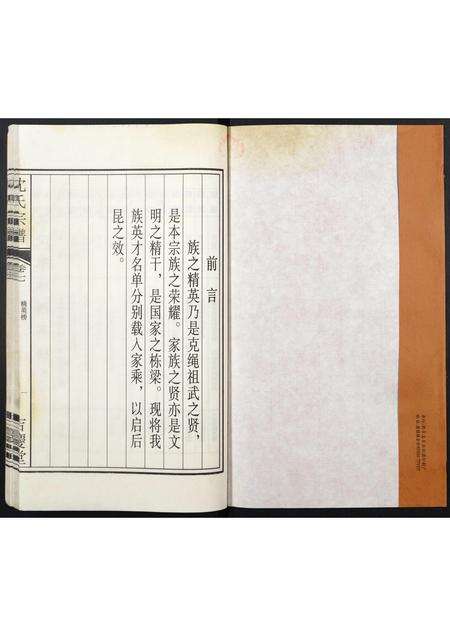 前言
族之精英乃是克绳祖武之贤，
是本宗族之荣耀。家族之贤亦是文
明之精干，是国家之栋梁。现将我
族英才名单分别载入家乘，以启后
昆之效。
沈氏宗谱
卷七
精英榜
一